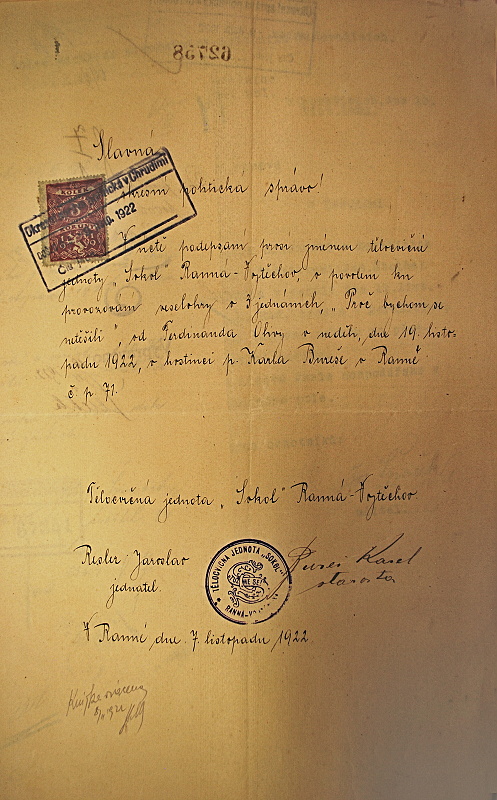 62758
Slavná
okresní politická správo!
Okresní politická v Chrudimi
1922
KOLEK
5
V neté podepsaní prosí jménem tělocvičné
jednoty „Sokol" Ranná-Vojtěchov, o povolení ku
provozování veselohry o 3 jednáních, „Proč bychom se
netěšili", od Ferdinanda Olivy v neděli, dne 19. listo-
padu 1922, v hostinci p. Karla Bureše v Ranné
č p. 71.
Tělocvičná jednota „Sokol" Ranná-Vojtěchov
Resler Jaroslav
jednatel.
TĚLOCVIČNÁ JEDNOTA „SOKOL"
RANNÁ-
Bureš Karel
starosta
V Ranné dne 7. listopadu 1922.